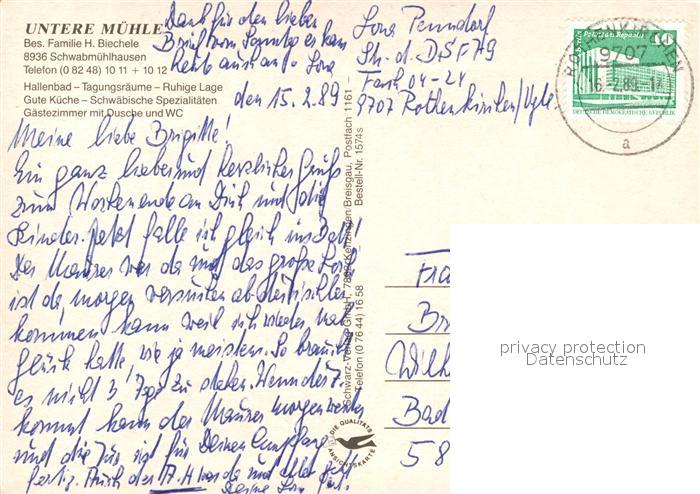 UNTERE MÜHLE
Bes. Familie H. Biechele
8936 Schwabmühlhausen
Telefon (0 82 48) 10 11 + 10 12
Hallenbad – Tagungsräume – Ruhige Lage
Gute Küche – Schwäbische Spezialitäten
Gästezimmer mit Dusche und WC
Dank für den lieben
Brief vom Sonntag es kam
heute auch an
den 15.2.89
Meine liebe Brigitte!
Ein ganz lieber und herzlicher Gruß
zum Wochenende an Dich und die
Kinder. Jetzt falle ich gleich ins Bett!
Der Maurer war da und das große Loch
ist da, morgen versuchen ob der Tischler
kommen kann weil ich wieder mal
Glück hatte, wie ja meistens. So braucht
es nicht 3 Tage zu
kommt kann der Maurer morgen werden
und die Tür ist für Deinen Empfang
fertig. Auch der war da und alles
Deine
Penndorf
Str. d. DSF 79
Fach 04-24
9707 Rothenkirchen/Vgtl.
ROTHENKIRCHEN
9707
16.2.89
a
Palast der Republik
10
DEUTSCHE DEMOKRATISCHE REPUBLIK
Schwarz-Verlag GmbH, Kenzingen/Breisgau, Postfach 1161 –
Telefon (0 76 44) 16 58
Bestell-Nr. 1574s
DIE QUALITÄTS
ANSICHTSKARTE
Fra
Br
Wilh
Bad
58
privacy protection
Datenschutz